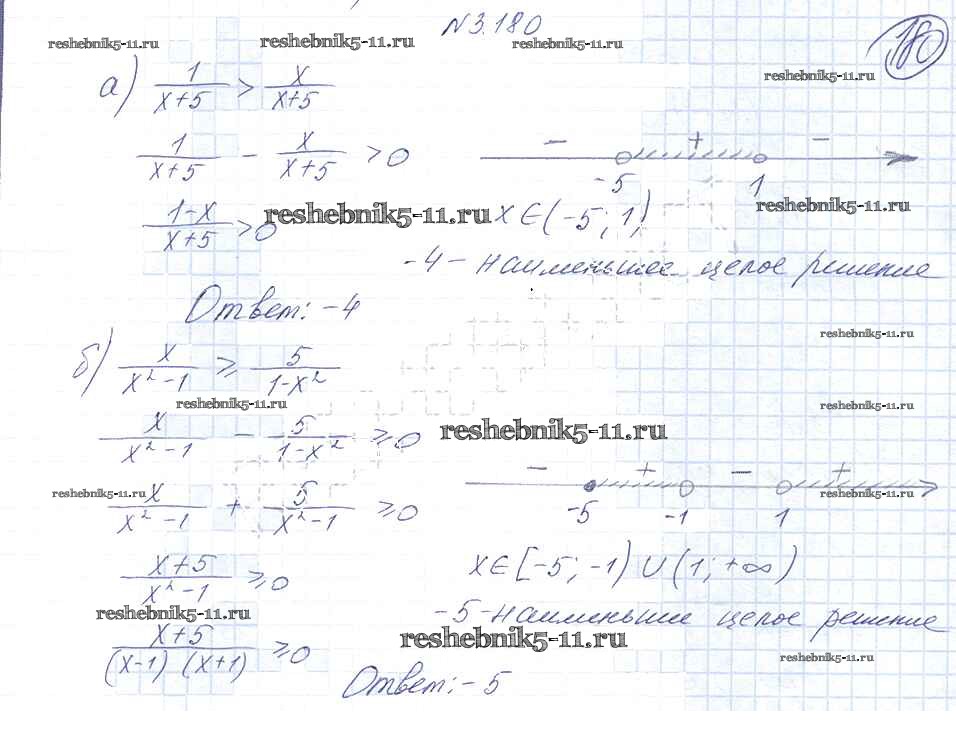 N 3.180
180
reshebnik5-11.ru reshebnik5-11.ru reshebnik5-11.ru
reshebnik5-11.ru
а) 1/(x+5) > x/(x+5)
1/(x+5) - x/(x+5) > 0
- + -
-5 1
(1-x)/(x+5) > 0
reshebnik5-11.ru
x ∈ (-5; 1)
reshebnik5-11.ru
-4 - наименьшее целое решение
Ответ: -4
reshebnik5-11.ru
б) x/(x²-1) ≥ 5/(1-x²)
reshebnik5-11.ru
reshebnik5-11.ru
x/(x²-1) - 5/(1-x²) ≥ 0
reshebnik5-11.ru
- + - +
-5 -1 1
reshebnik5-11.ru
reshebnik5-11.ru
x/(x²-1) + 5/(x²-1) ≥ 0
(x+5)/(x²-1) ≥ 0
x ∈ [-5; -1) ∪ (1; +∞)
reshebnik5-11.ru
-5 - наименьшие целое решение
reshebnik5-11.ru
(x+5)/((x-1) (x+1)) ≥ 0
reshebnik5-11.ru
Ответ: -5